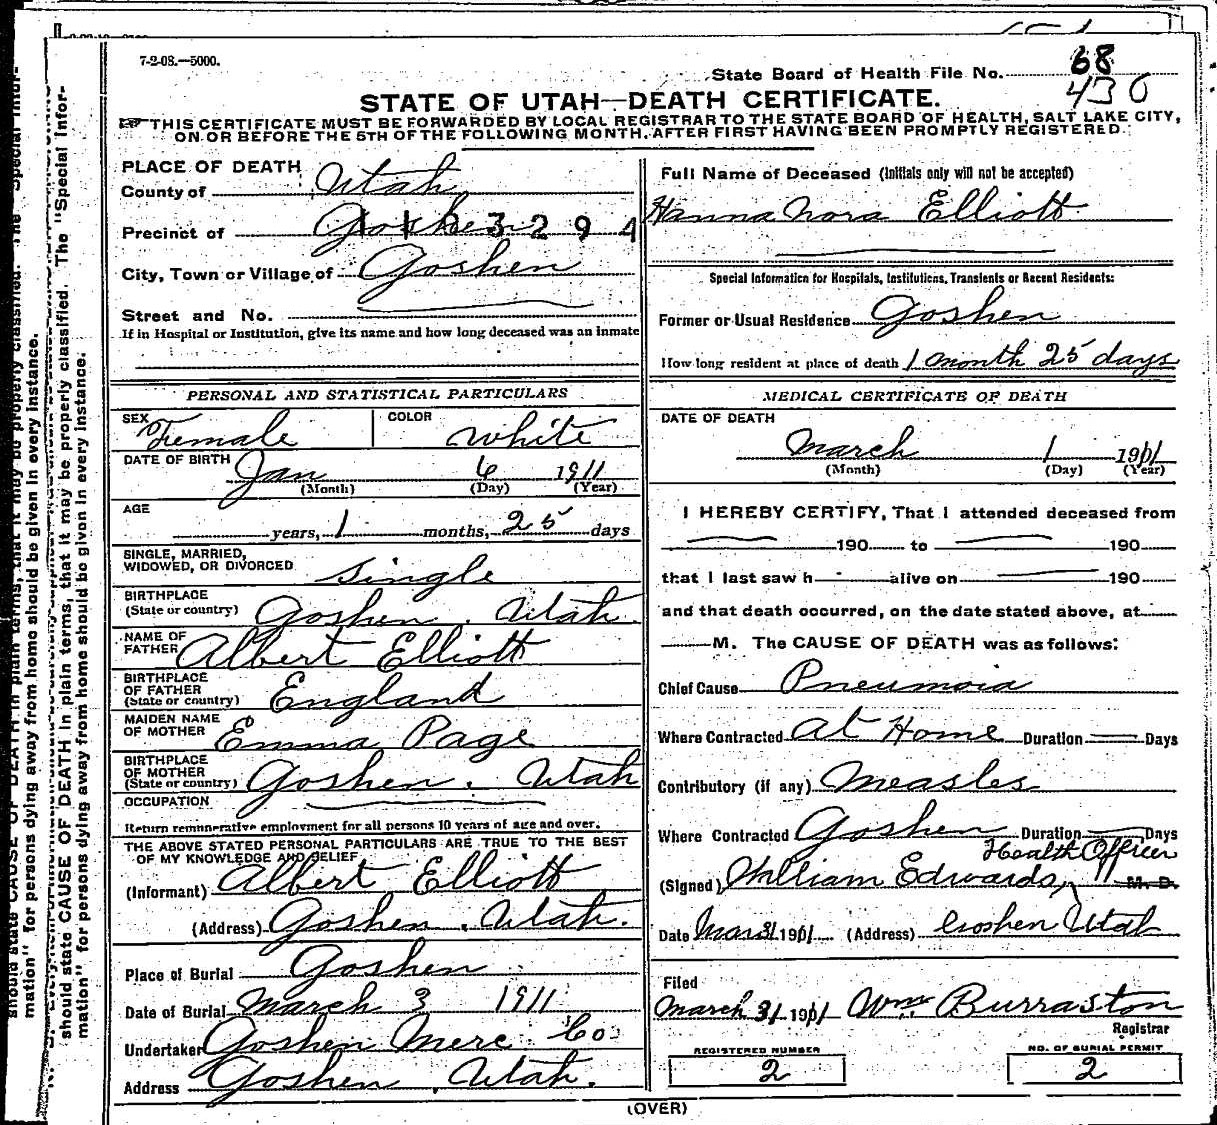 7-2-08.—5000.
State Board of Health File No. 68
430
STATE OF UTAH—DEATH CERTIFICATE.
THIS CERTIFICATE MUST BE FORWARDED BY LOCAL REGISTRAR TO THE STATE BOARD OF HEALTH, SALT LAKE CITY,
ON OR BEFORE THE 5TH OF THE FOLLOWING MONTH, AFTER FIRST HAVING BEEN PROMPTLY REGISTERED.
PLACE OF DEATH
County of Utah
Precinct of Goshen
3 2 9 4
City, Town or Village of Goshen
Street and No.
If in Hospital or Institution, give its name and how long deceased was an inmate
PERSONAL AND STATISTICAL PARTICULARS
SEX Female COLOR White
DATE OF BIRTH Jan 6 1911
(Month) (Day) (Year)
AGE
years, 1 months, 25 days
SINGLE, MARRIED,
WIDOWED, OR DIVORCED Single
BIRTHPLACE
(State or country) Goshen. Utah.
NAME OF
FATHER Albert Elliott
BIRTHPLACE
OF FATHER
(State or country) England
MAIDEN NAME
OF MOTHER Emma Page
BIRTHPLACE
OF MOTHER
(State or country) Goshen. Utah
OCCUPATION
Return remunerative employment for all persons 10 years of age and over.
THE ABOVE STATED PERSONAL PARTICULARS ARE TRUE TO THE BEST
OF MY KNOWLEDGE AND BELIEF
(Informant) Albert Elliott
(Address) Goshen, Utah.
Place of Burial Goshen
Date of Burial March 3 1911
Undertaker Goshen Merc Co
Address Goshen, Utah.
Full Name of Deceased (Initials only will not be accepted)
Hanna Nora Elliott
Special Information for Hospitals, Institutions, Transients or Recent Residents:
Former or Usual Residence Goshen
How long resident at place of death 1 month 25 days
MEDICAL CERTIFICATE OF DEATH
DATE OF DEATH
March 1 1911
(Month) (Day) (Year)
I HEREBY CERTIFY, That I attended deceased from
190 to 190
that I last saw h alive on 190
and that death occurred, on the date stated above, at
M. The CAUSE OF DEATH was as follows:
Chief Cause Pneumoia
Where Contracted At Home Duration Days
Contributory (if any) Measles
Where Contracted Goshen Duration Days
Health Officer
(Signed) William Edwards, M. D.
Date Mar 3/1911 (Address) Goshen Utah
Filed
March 3/1911 Wm. Burraston
Registrar
REGISTERED NUMBER
2
NO. OF BURIAL PERMIT
2
(OVER)
should state CAUSE OF DEATH in plain terms, that it may be properly classified. The "Special Infor-
mation" for persons dying away from home should be given in every instance.
should state CAUSE OF DEATH in plain terms, that it may be properly classified. The "Special Infor-
mation" for persons dying away from home should be given in every instance.